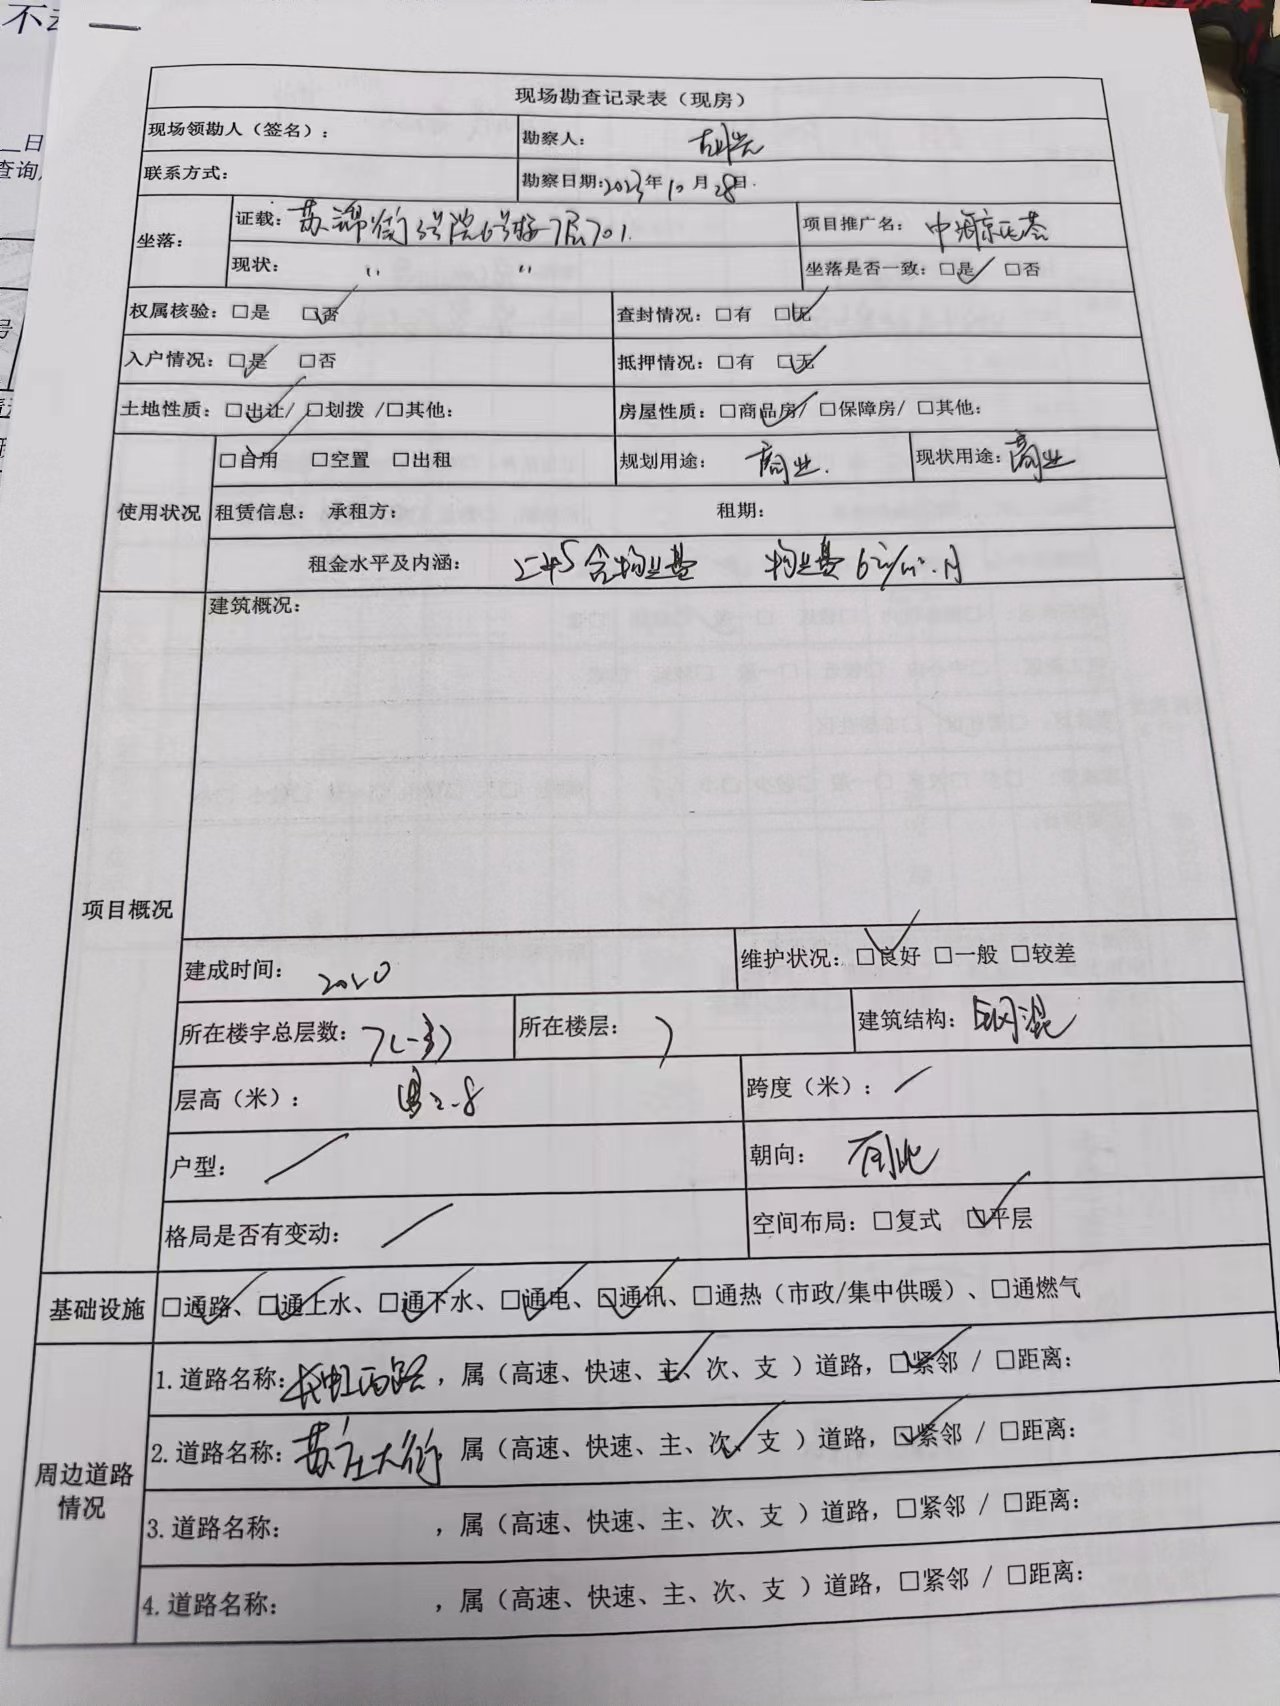 现场勘查记录表（现房）
现场领勘人（签名）： 勘察人：
联系方式： 勘察日期：2023年10月28日.
坐落： 证载：苏锦街3号院6号楼7层701. 项目推广名：中海京
现状： 〃 〃 坐落是否一致：☑是 □否
权属核验：□是 ☑否 查封情况：□有 ☑无
入户情况：☑是 □否 抵押情况：□有 ☑无
土地性质：☑出让/ □划拨 /□其他： 房屋性质：☑商品房/ □保障房/ □其他：
使用状况 ☑自用 □空置 □出租 规划用途：商业. 现状用途：商业
租赁信息： 承租方： 租期：
租金水平及内涵： 含物业费 物业费6元/㎡.月
项目概况 建筑概况：
建成时间：2020 维护状况：☑良好 □一般 □较差
所在楼宇总层数：7(-3) 所在楼层：7 建筑结构：钢混
层高（米）： 2.8 跨度（米）：/
户型：/ 朝向：南北
格局是否有变动：/ 空间布局：□复式 ☑平层
基础设施 ☑通路、☑通上水、☑通下水、☑通电、☑通讯、□通热（市政/集中供暖）、□通燃气
周边道路情况 1.道路名称：长虹西路，属（高速、快速、主✓、次、支 ）道路，☑紧邻 / □距离：
2.道路名称：苏庄大街 属（高速、快速、主、次✓、支 ）道路，☑紧邻 / □距离：
3.道路名称： ，属（高速、快速、主、次、支 ）道路，□紧邻 / □距离：
4.道路名称： ，属（高速、快速、主、次、支 ）道路，□紧邻 / □距离：